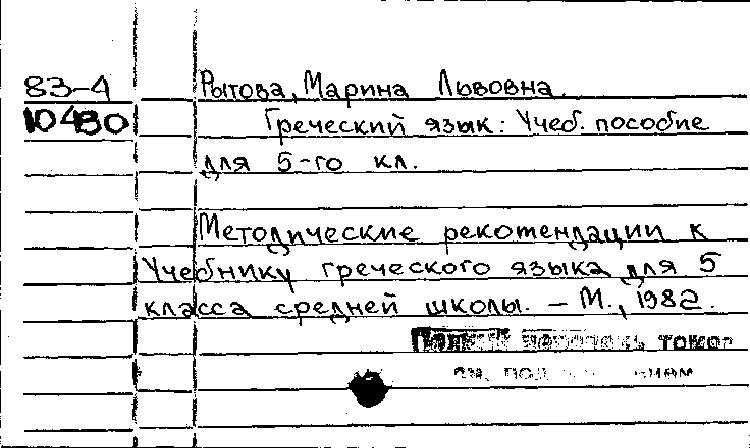 83-4
10480
Рытова, Марина Львовна.
Греческий язык: Учеб. пособие
для 5-го кл.
Методические рекомендации к
Учебнику греческого языка для 5
класса средней школы. – М., 1982.
Полный перечень томов
см. под